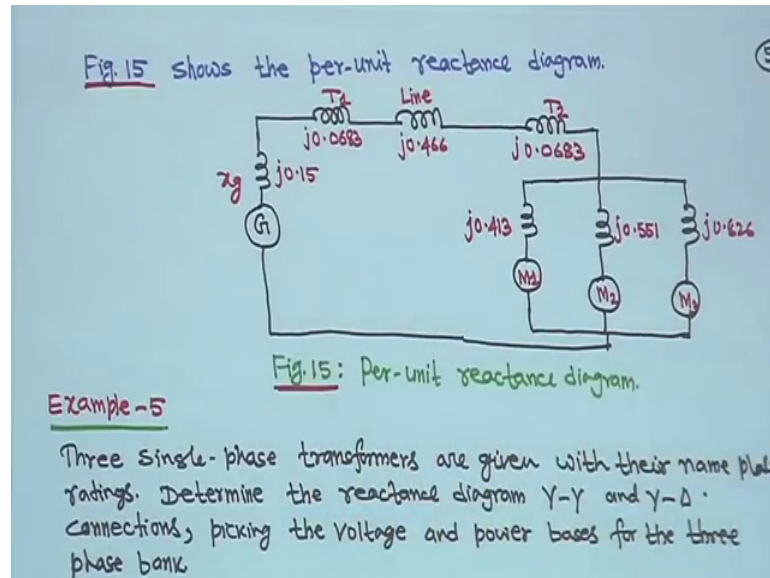 Fig. 15 shows the per-unit reactance diagram.
5
T1
Line
T2
j0.0683
j0.466
j0.0683
xg
j0.15
G
j0.413
j0.551
j0.626
M1
M2
M3
Fig. 15: Per-unit reactance diagram.
Example-5
Three single-phase transformers are given with their name
ratings. Determine the reactance diagram Y-Y and Y-Δ.
connections, picking the voltage and power bases for the three
phase bank